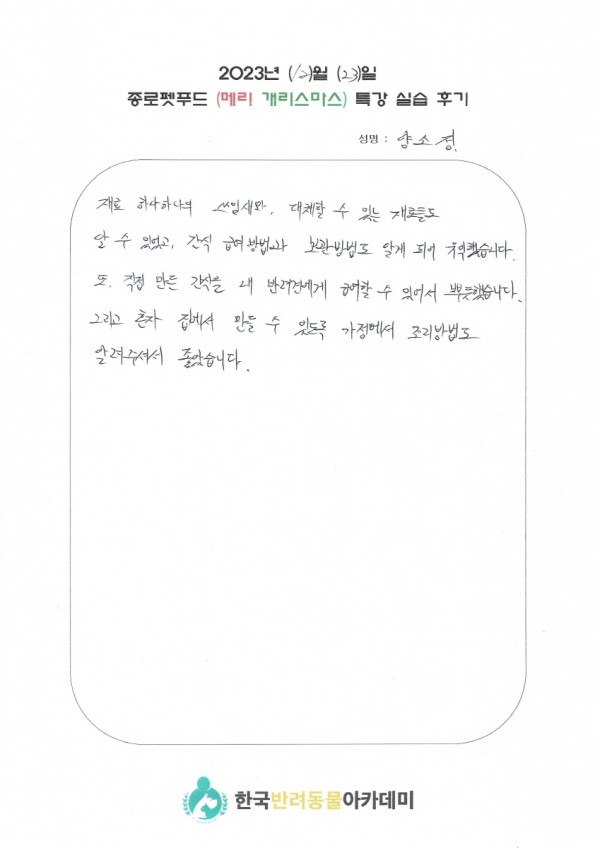 2023년 (12)월 (23)일
종로펫푸드 (메리 개리스마스) 특강 실습 후기
성명 : 양소정
재료 하나하나의 쓰임새와, 대체할 수 있는 재료들도
알 수 있었고, 간식 급여방법과 보관방법도 알게 되어 유익했습니다.
또, 직접 만든 간식을 내 반려견에게 급여할 수 있어서 뿌듯했습니다.
그리고 혼자 집에서 만들 수 있도록 가정에서 조리방법도
알려주셔서 좋았습니다.
한국반려동물아카데미